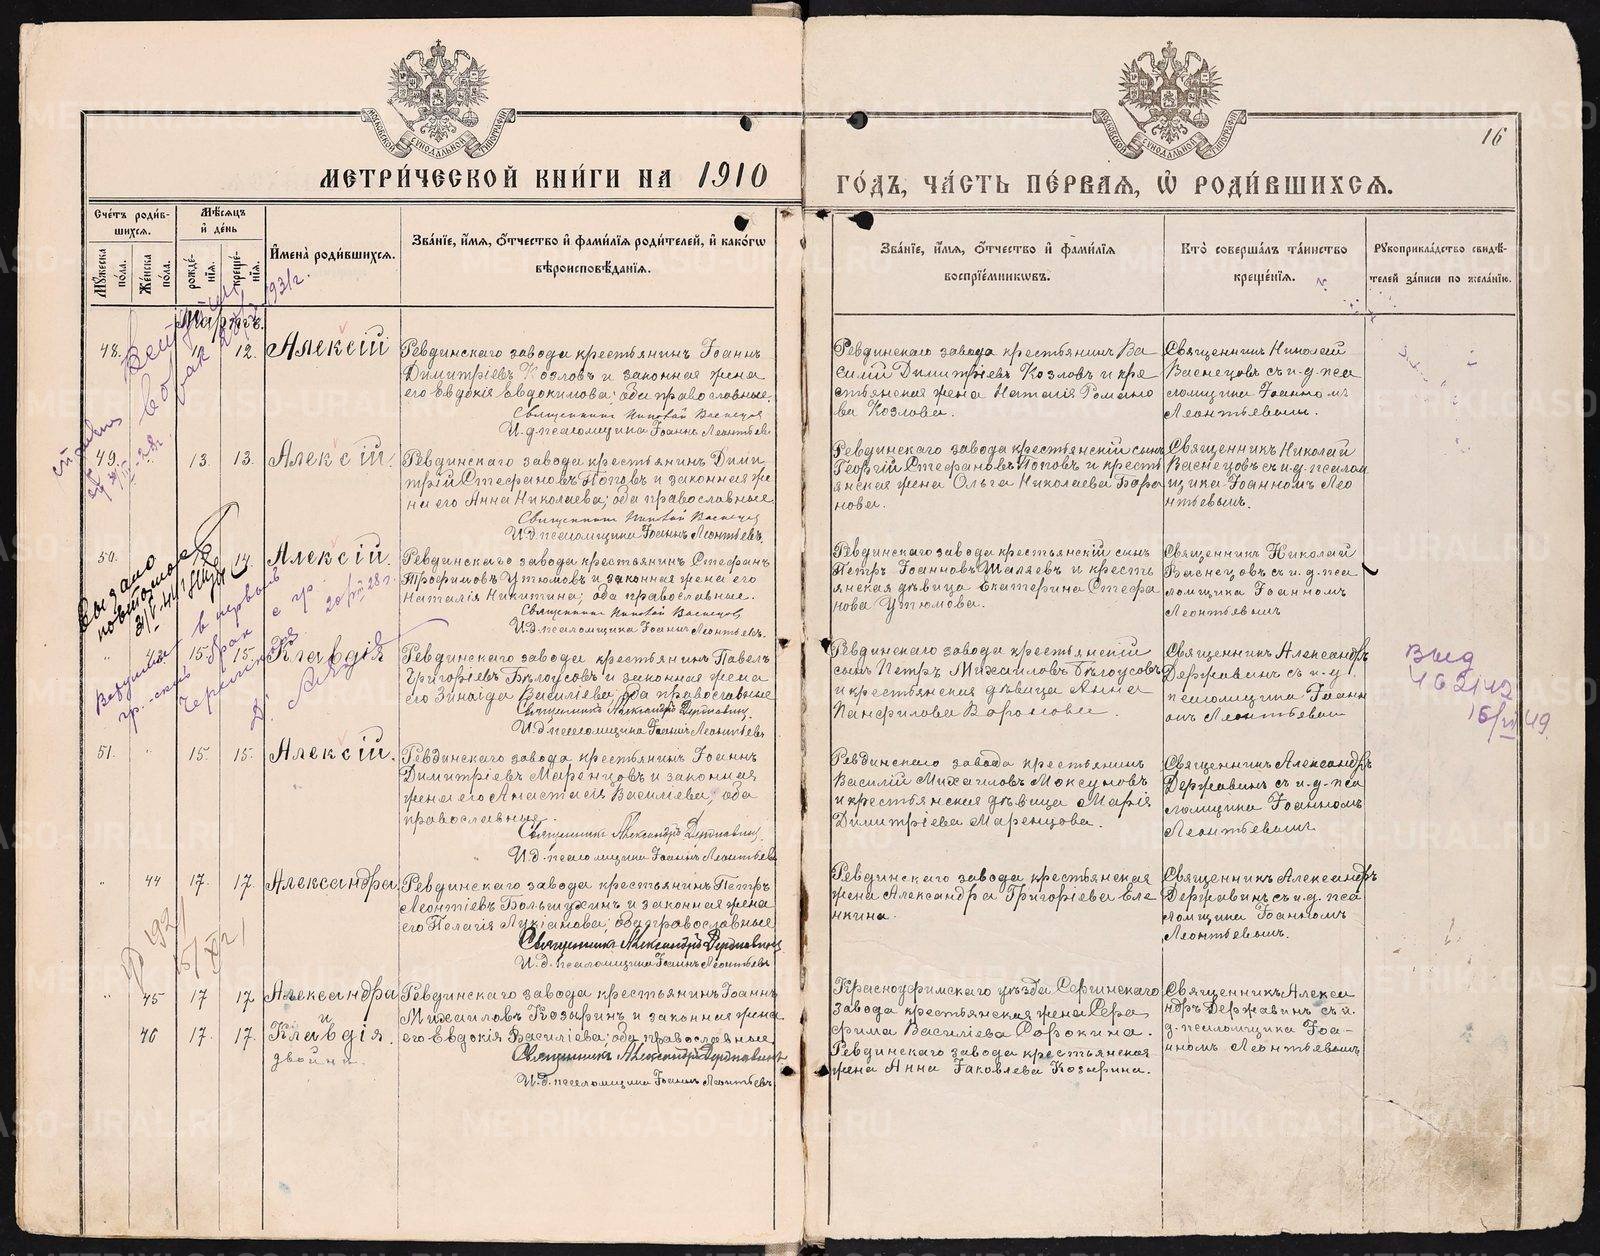 МЕТРИ́ЧЕСКОЙ КНИ́ГИ НА 1910
ГО́ДЪ, ЧА́СТЬ ПЕ́РВАЯ, Ѡ҆ РОДИ́ВШИХСЯ.
16
Сче́тъ роди́в-
шихся.
Мѣсяцъ
и҆ де́нь
Му́жеска
по́ла.
Же́нска
по́ла.
рожде́-
нїя.
креще́-
нїя.
И҆мена̀ роди́вшихся.
Зва́нїе, и҆́мя, ѻ҆́тчество и҆ фами́лїя роди́телей, и҆ како́гѡ
вѣроисповѣ́данїя.
Зва́нїе, и҆́мя, ѻ҆́тчество и҆ фами́лїя
воспрїе́мниковъ.
Кто̀ соверша́лъ та́инство
креще́нїя.
Рꙋкоприкла́дство свидѣ́-
телей за́писи по жела́нїю.
Мартъ.
48. 12. Алексій
Ревдинскаго завода крестьянинъ Іоаннъ
Димитріевъ Козловъ и законная жена
его Евдокія Евдокимова; оба православные.
Священникъ Николай Васнецовъ
И.д. псаломщика Іоаннъ Леонтьевъ
Ревдинскаго завода крестьянинъ Ва
силій Димитріевъ Козловъ и кре
стьянская жена Наталія Романо
ва Козлова.
Священникъ Николай
Васнецовъ съ и.д. пса
ломщика Іоанномъ
Леонтьевымъ.
49. 13. 13. Алексій.
Ревдинскаго завода крестьянинъ Дими
трій Стефановъ Поповъ и законная же
на его Анна Николаева; оба православные
Священникъ Николай Васнецовъ
И.д. псаломщика Іоаннъ Леонтьевъ
Ревдинскаго завода крестьянскій сынъ
Георгій Стефановъ Поповъ и кресть
янская жена Ольга Николаева Бора
нова.
Священникъ Николай
Васнецовъ съ и.д. псалом
щика Іоанномъ Лео
нтьевымъ.
50. 14. Алексій.
Ревдинскаго завода крестьянинъ Стефанъ
Трофимовъ Утюмовъ и законная жена его
Наталія Никитина; оба православные.
Священникъ Николай Васнецовъ
И.д. псаломщика Іоаннъ Леонтьевъ.
Ревдинскаго завода крестьянскій сынъ
Петръ Іоанновъ Шаляевъ и кресть
янская дѣвица Екатерина Стефа
нова Утюмова.
Священникъ Николай
Васнецовъ съ и.д. пса
ломщика Іоанномъ
Леонтьевымъ
15. 15. Клавдія
Ревдинскаго завода крестьянинъ Павелъ
Григоріевъ Бѣлоусовъ и законная жена
его Зинаида Василіева; оба православные
Священникъ Александръ Державинъ
И.д. псаломщика Іоаннъ Леонтьевъ
Ревдинскаго завода крестьянскій
сынъ Петръ Михаиловъ Бѣлоусовъ
и крестьянская дѣвица Анна
Панфилова Воронова.
Священникъ Александръ
Державинъ съ и.д.
псаломщика Іоанн
омъ Леонтьевым
51. " 15. 15. Алексій.
Ревдинскаго завода крестьянинъ Іоаннъ
Димитріевъ Маренцовъ и законная
жена его Анастасія Василіева; оба
православные.
Священникъ Александръ Державинъ.
И.д. псаломщика Іоаннъ Леонтьевъ
Ревдинскаго завода крестьянинъ
Василій Михаиловъ Моксуновъ
и крестьянская дѣвица Марія
Димитріева Маренцова.
Священникъ Александръ
Державинъ съ и.д. пса
ломщика Іоанномъ
Леонтьевымъ
" 44 17. 17. Александра
Ревдинскаго завода крестьянинъ Петръ
Леонтіевъ Большухинъ и законная жена
его Пелагія Лукіанова; оба православные
Священникъ Александръ Державинъ
И.д. псаломщика Іоаннъ Леонтьевъ
Ревдинскаго завода крестьянская
жена Александра Григоріева Еле
нкина.
Священникъ Александръ
Державинъ съ и.д. пса
ломщика Іоанномъ
Леонтьевымъ.
" 45 17 17. Александра
и
46 17. 17. Клавдія.
двойни.
Ревдинскаго завода крестьянинъ Іоаннъ
Михаиловъ Козыринъ и законная жена
его Евдокія Василіева; оба православные
Священникъ Александръ Державинъ
И.д. псаломщика Іоаннъ Леонтьевъ.
Красноуфимскаго уѣзда Сергинскаго
завода крестьянская жена Сера
фима Василіева Сорокина.
Ревдинскаго завода крестьянская
жена Анна Іаковлева Козырина.
Священникъ Алекса
ндръ Державинъ съ и.
д. псаломщика Іоа-
нномъ Леонтьевымъ
Выдано
повторное
в первый
брак с гр.
20/VII 28 г.
1931 г.
Выд